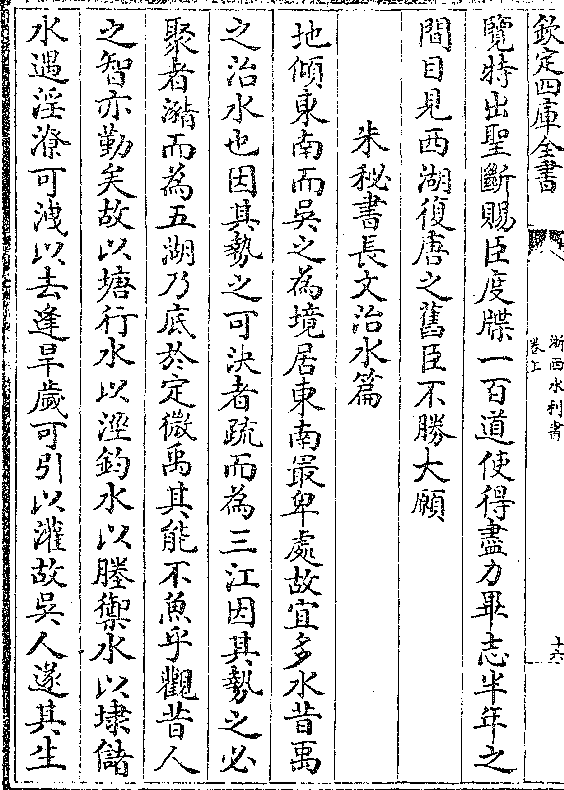 欽定四庫全書
浙西水利書
卷上
十六
覽特出聖斷賜臣度牒一百道使得盡力畢志半年之
間目見西湖復唐之舊臣不勝大願
朱秘書長文治水篇
地傾東南而吳之為境居東南最卑處故宜多水昔禹
之治水也因其勢之可決者疏而為三江因其勢之必
聚者瀦而為五湖乃底於定微禹其能不魚乎觀昔人
之智亦勤矣故以塘行水以涇鈞水以塍禦水以埭儲
水遇淫潦可洩以去逢旱歲可引以灌故吳人遂其生